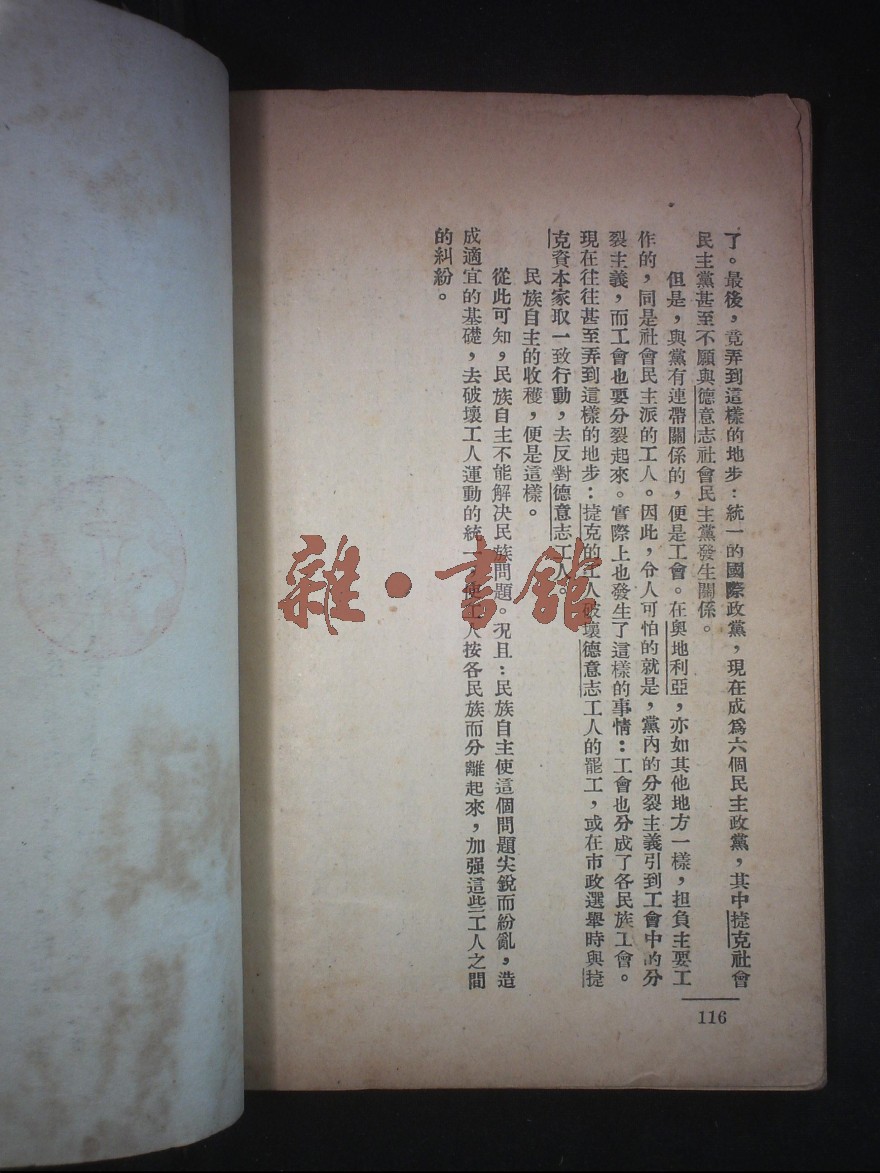 了。最後，竟弄到這樣的地步：統一的國際政黨，現在成爲六個民主政黨，其中捷克社會
民主黨甚至不願與德意志社會民主黨發生關係。
但是，與黨有連帶關係的，便是工會。在奧地利亞，亦如其他地方一樣，担負主要工
作的，同是社會民主派的工人。因此，令人可怕的就是，黨內的分裂主義引到工會中的分
裂主義，而工會也要分裂起來。實際上也發生了這樣的事情：工會也分成了各民族工會。
現在往往甚至弄到這樣的地步：捷克的工人破壞德意志工人的罷工，或在市政選舉時與捷
克資本家取一致行動，去反對德意志工人。
民族自主的收穫，便是這樣。
從此可知，民族自主不能解決民族問題。况且：民族自主使這個問題尖銳而紛亂，造
成適宜的基礎，去破壞工人運動的統一，使工人按各民族而分離起來，加强這些工人之間
的糾紛。
116
雜·書館